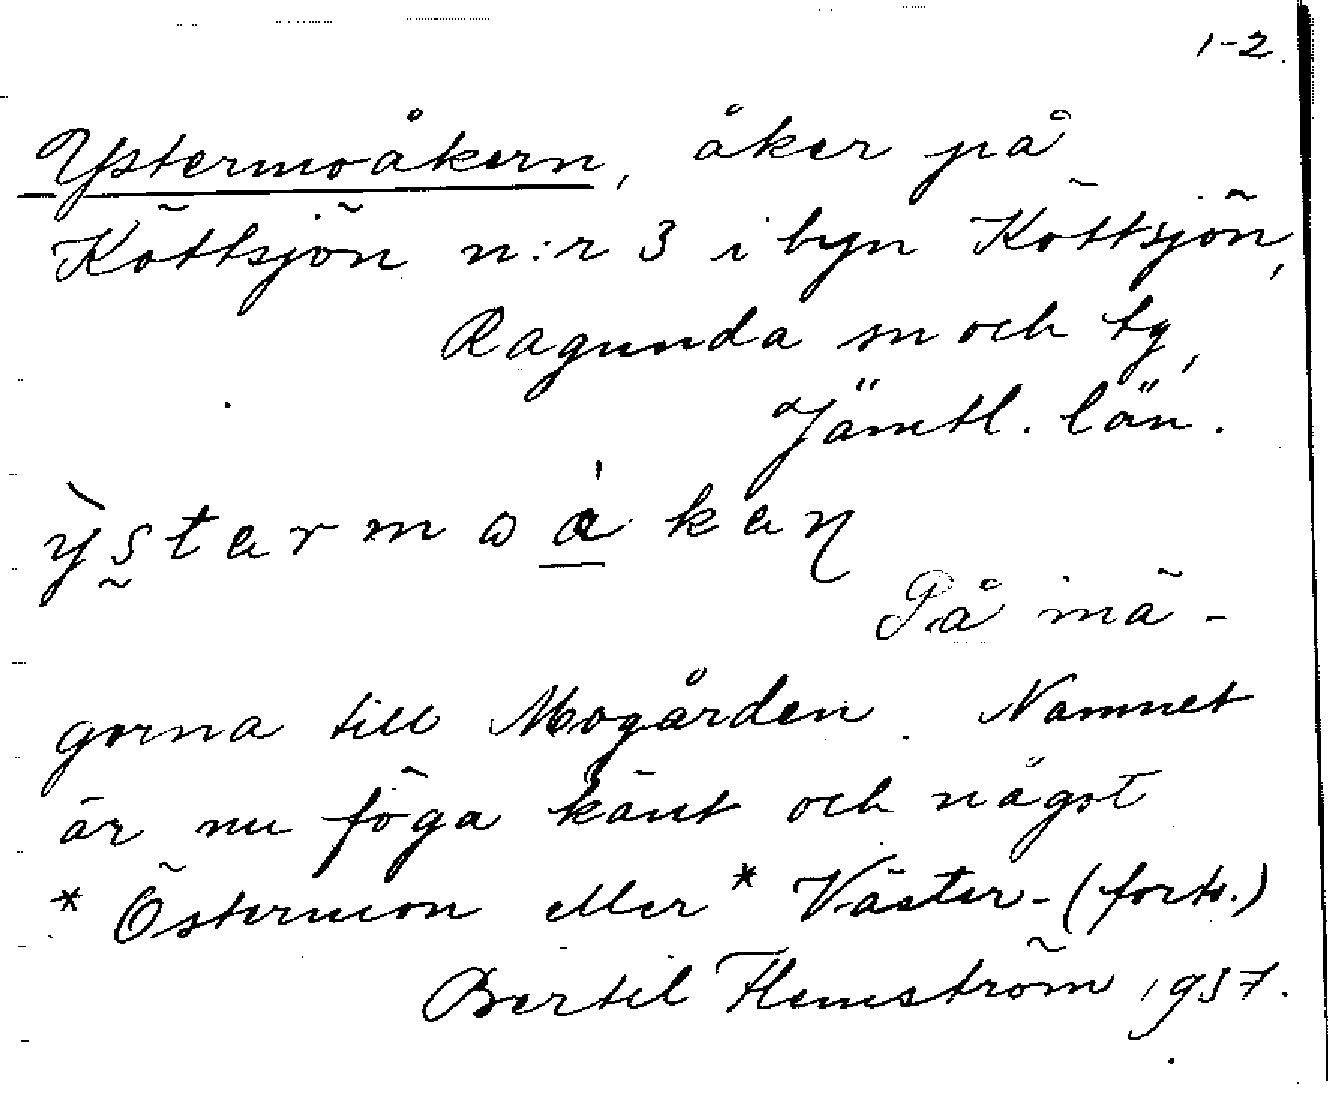 1-2.
Ystermoåkern, åker på
Köttsjön n:r 3 i byn Köttsjön,
Ragunda sn och tg,
Jämtl. län.
På mä-
gorna till Mogården. Namnet
är nu föga känt och något
* Östermon eller * Väster- (forts.)
Bertil Flemström 1937.